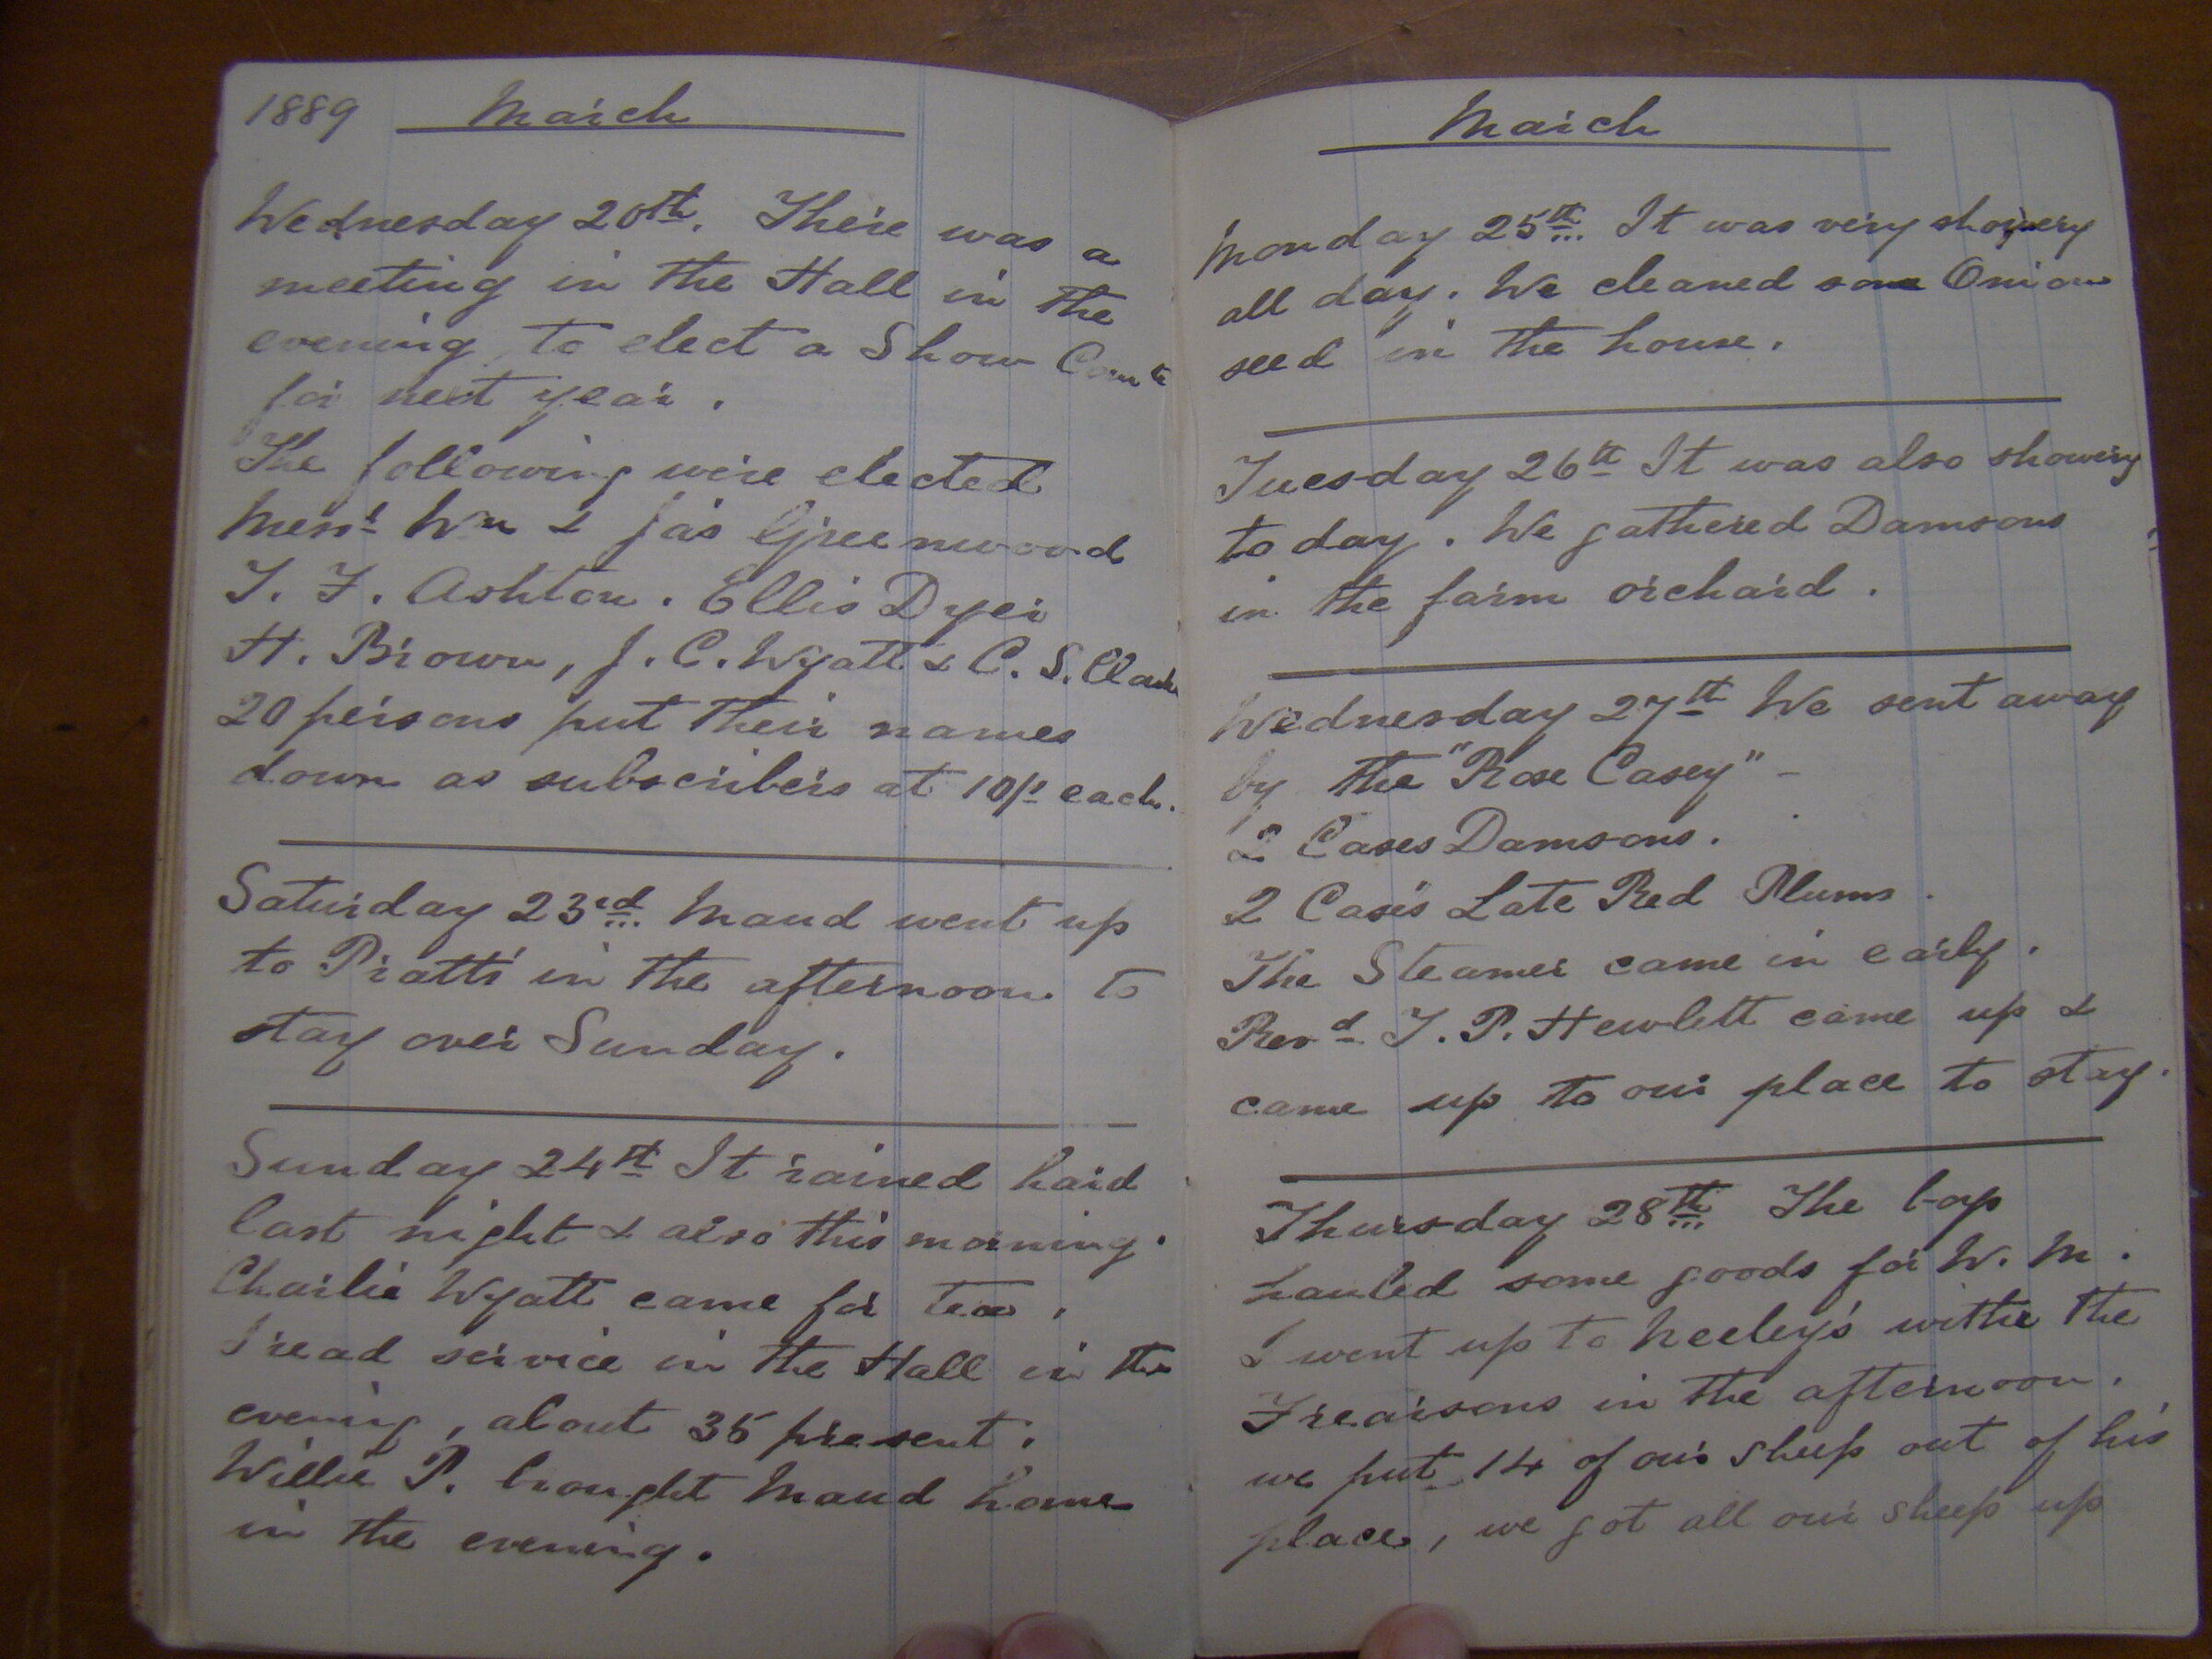 1889 March
Wednesday 20th. There was a
meeting in the Hall in the
evening to elect a Show Comte
for next year.
The following were elected
Messrs Wm & Jas Greenwood
T. F. Ashton. Ellis Dyer
H. Brown, J. C. Wyatt & C. S. Clarke
20 persons put their names
down as subscribers at 10/s each.
Saturday 23rd Maud went up
to Pratts' in the afternoon to
stay over Sunday.
Sunday 24th It rained hard
last night & also this morning.
Charlie Wyatt came for tea.
I read service in the Hall in the
evening, about 35 present.
Willie P. brought Maud home
in the evening.
March
Monday 25th It was very showery
all day. We cleaned some Onion
seed in the house.
Tuesday 26th It was also showery
to day. We gathered Damsons
in the farm orchard.
Wednesday 27th We sent away
by the "Rose Casey" -
2 Cases Damsons.
2 Cases Late Red Plums.
The Steamer came in early.
Revd T. P. Hewlett came up &
came up to our place to stay.
Thursday 28th The boys
hauled some goods for W. M.
I went up to Neeley's with the
Frearsons in the afternoon.
we put 14 of our sheep out of his
place, we got all our sheep up